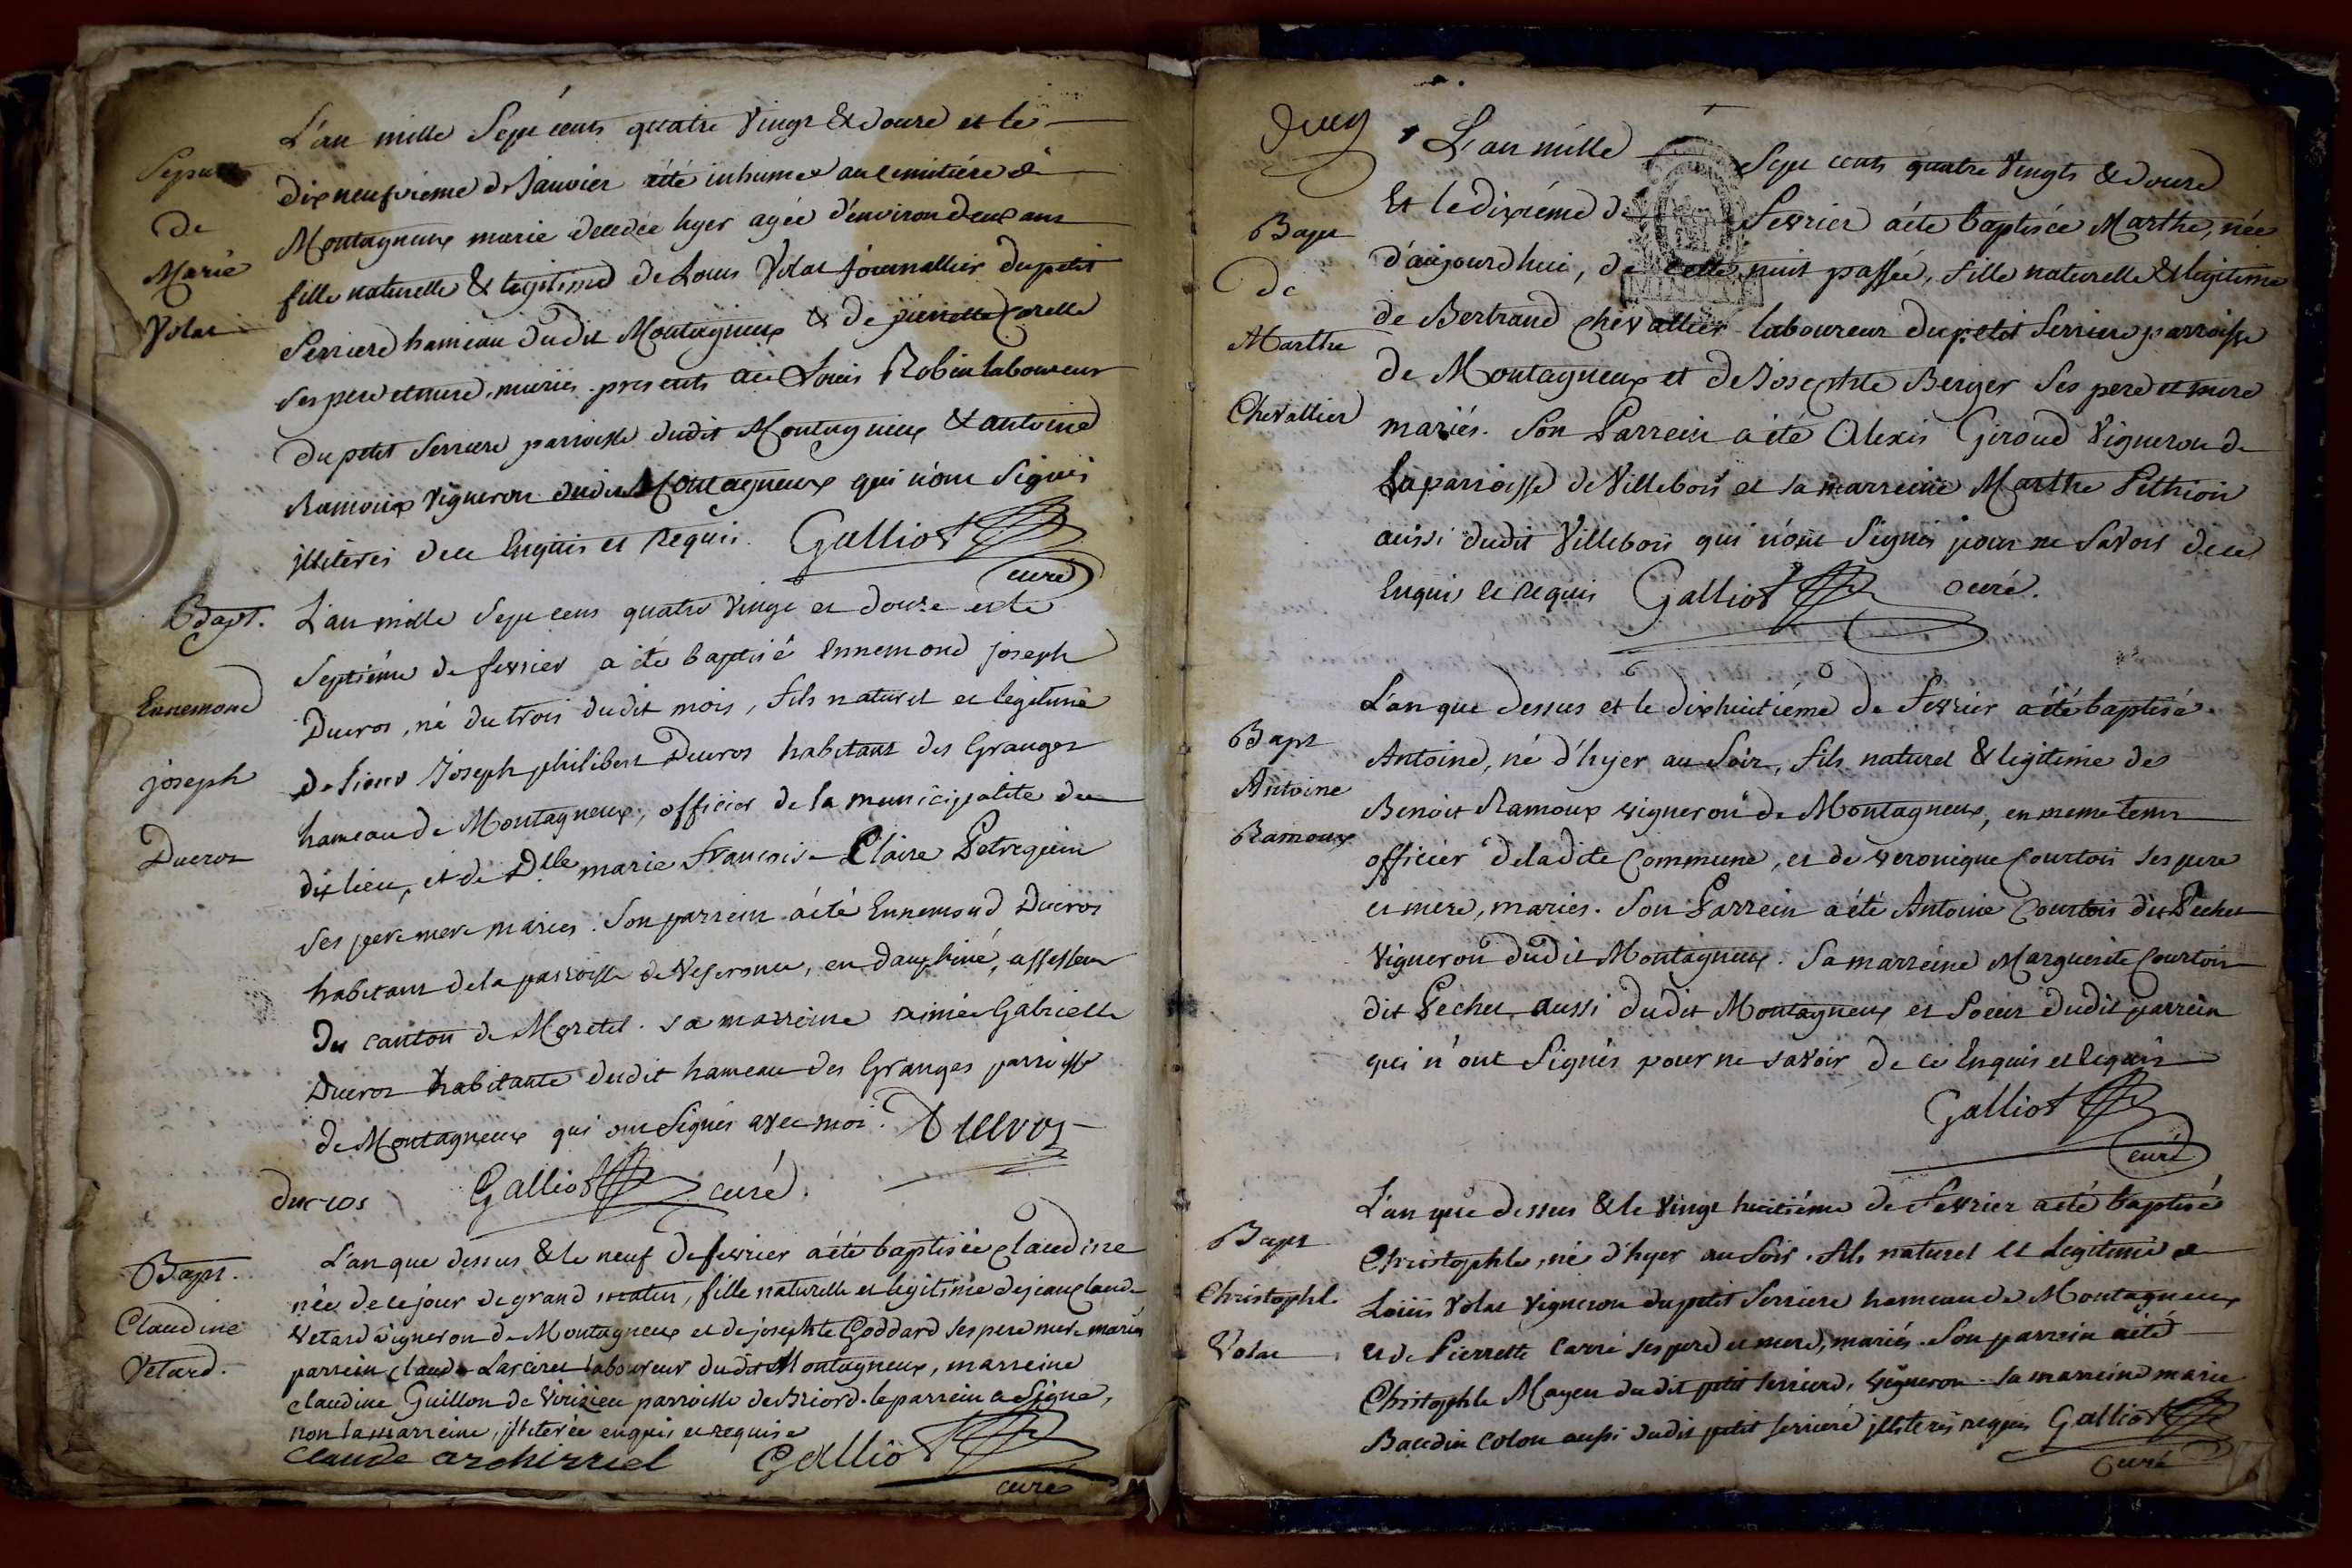 Sepult
de
Marie
Volat
L'an mille Sept cents quatre Vingt & douze et le
dix neufvieme de Janvier été inhumée au cimitiére de
Montagneux marie décédée hyer agée d'environ deux ans
fille naturelle & legitime de Louis Volat journallier du petit
Serriere hameau dudit Montagneux & de pierrette Carelle
ses pere et mere, mariés. presents Louis Robin laboureur
du petit Serriere parroisse dudit Montagneux & antoine
Ramoux vigneron dudit Montagneux qui n'ont Signés
illiterés de ce Enquis et Requis. Galliot
curé
Bapt.
Ennemond
joseph
Ducros
L'an mille Sept cens quatre Vingt et douze et le
Septiéme de fevrier a été baptisé Ennemond joseph
Ducros, né du trois dudit mois, fils naturel et legitime
de sieur Joseph philibert Ducros habitant des Granges
hameau de Montagneux, officier de la municipalité du
dit lieu, et de Dlle marie francoise Claire Petrequin
Ses pere mere mariés. Son parrein a été Ennemond Ducros
habitant de la parroisse de Veseronce, en dauphiné, assesseur
du canton de Moretel. sa marreine aimée Gabrielle
Ducros habitante dudit hameau des Granges parroisse
de Montagneux qui ont Signés avec moi. Ducros
ducros Galliot curé.
Bapt.
Claudine
Vetard.
L'an que dessus & le neuf de fevrier a été baptisée claudine
née de ce jour de grand matin, fille naturelle et legitime de jean claude
Vetard vigneron de Montagneux et de josephte Goddard ses pere mere mariés
parrein claude Larciret laboureur dudit Montagneux, marreine
claudine Guillon de Virizieu parroisse de Briord. le parrein a Signé,
non la marreine, illiterée enquis et requise
claude archirriel Galliot
curé
Ducy
Bapt
de
Marthe
Chevallier
L'an mille Sept cents quatre Vingts & douze
Et le dixiéme de Fevrier a été baptisée Marthe, née
d'aujourdhui, de cette nuit passée, fille naturelle & legitime
de Bertrand chevallier laboureur du petit Serriere parroisse
de Montagneux et de Josephte Berger Ses pere et mere
mariés. Son Parrein a été Alexis Giroud Vigneron de
La parroisse de Villebois et sa marreine Marthe Pethion
aussi dudit Villebois qui n'ont Signés pour ne Savoir de ce
Enquis et requis Galliot curé.
Bapt
Antoine
Ramoux
L'an que dessus et le dixhuitiéme de Fevrier a été baptisé
Antoine, né d'hyer au Soir, fils naturel & legitime de
Benoit Ramoux vigneron de Montagneux, en meme tems
officier de ladite Commune, et de veronique Courtois ses pere
et mere, mariés. Son Parrein a été Antoine Courtois dit Pechet
Vigneron dudit Montagneux. Sa marreine Marguerite Courtois
dit Pechet aussi dudit Montagneux et Soeur dudit parrein
qui n'ont Signés pour ne savoir de ce Enquis et Requis
Galliot
curé
Bapt
Christophle
Volat
L'an que dessus & le Vingt huitiéme de Fevrier a été baptisé
Christophle, né d'hyer au Soir. fils naturel et legitime de
Louis Volat Vigneron du petit Serriere hameau de Montagneux
et de Pierrette Carré ses pere et mere, mariés. Son parrein a été
Christophle Mayen dudit petit Serriere, vigneron. sa marreine marie
Baudin Colon aussi dudit petit Serriere illiterés requis Galliot
Curé